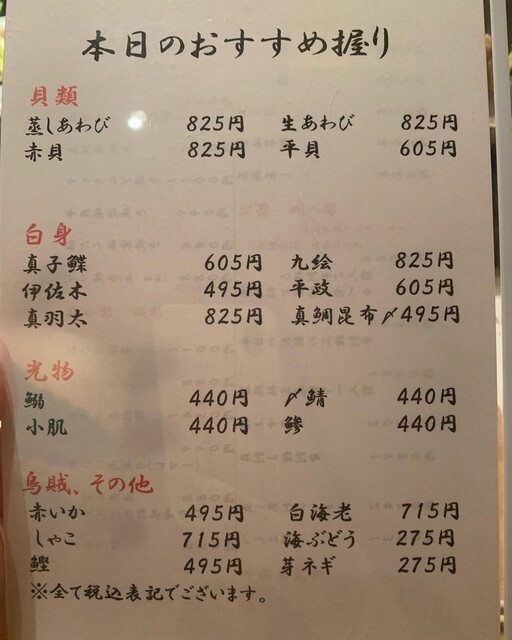 本日のおすすめ握り
貝類
蒸しあわび 825円 生あわび 825円
赤貝 825円 平貝 605円
白身
真子鰈 605円 九絵 825円
伊佐木 495円 平政 605円
真羽太 825円 真鯛昆布〆 495円
光物
鰯 440円 〆鯖 440円
小肌 440円 鯵 440円
烏賊、その他
赤いか 495円 白海老 715円
しゃこ 715円 海ぶどう 275円
鰹 495円 芽ネギ 275円
※全て税込表記でございます。